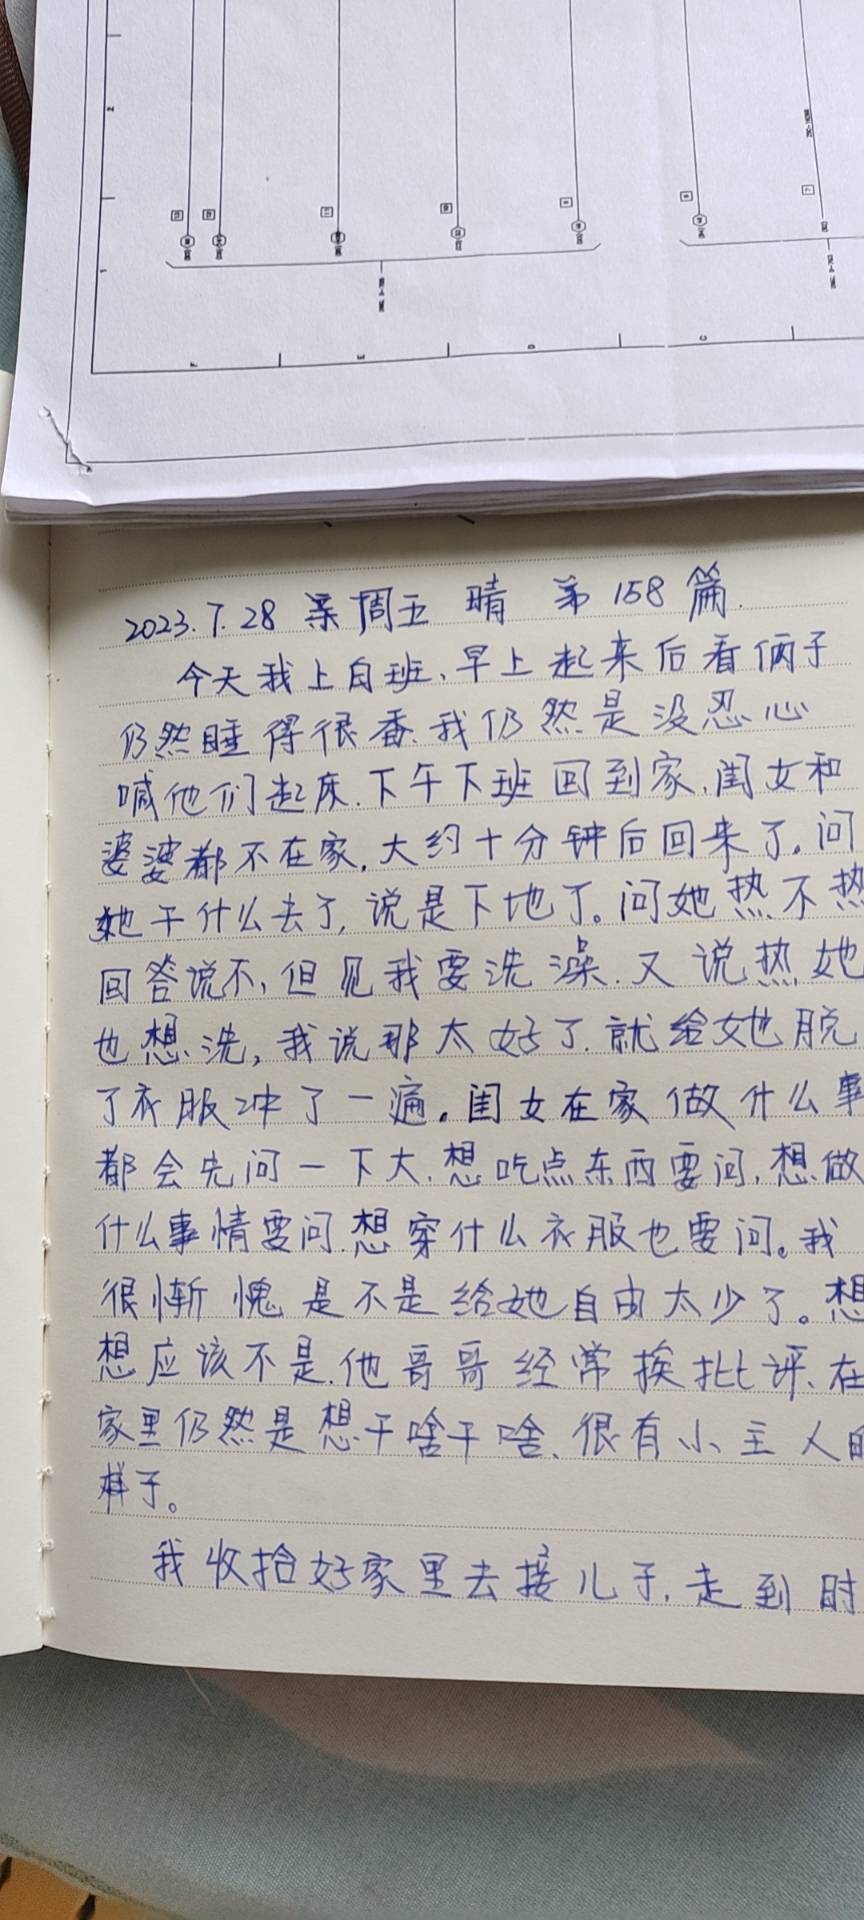 2023.7.28 周五 晴 第158篇.
今天我上白班、早上起来后看俩子
仍然睡得很香.我仍然是没忍心
喊他们起床.下午下班回到家,闺女和
婆婆都不在家.大约十分钟后回来了.问
她干什么去了,说是下地了。问她热不热
回答说不,但见我要洗澡.又说热她
也想洗,我说那太好了.就给她脱
了衣服冲了一遍。闺女在家做什么事
都会先问一下大.想吃点东西要问,想做
什么事情要问.想穿什么衣服也要问。我
很惭愧是不是给她自由太少了。想
想应该不是.他哥哥经常挨批评、在
家里仍然是想干啥干啥、很有小主人的
样子。
我收拾好家里去接儿子,走到时